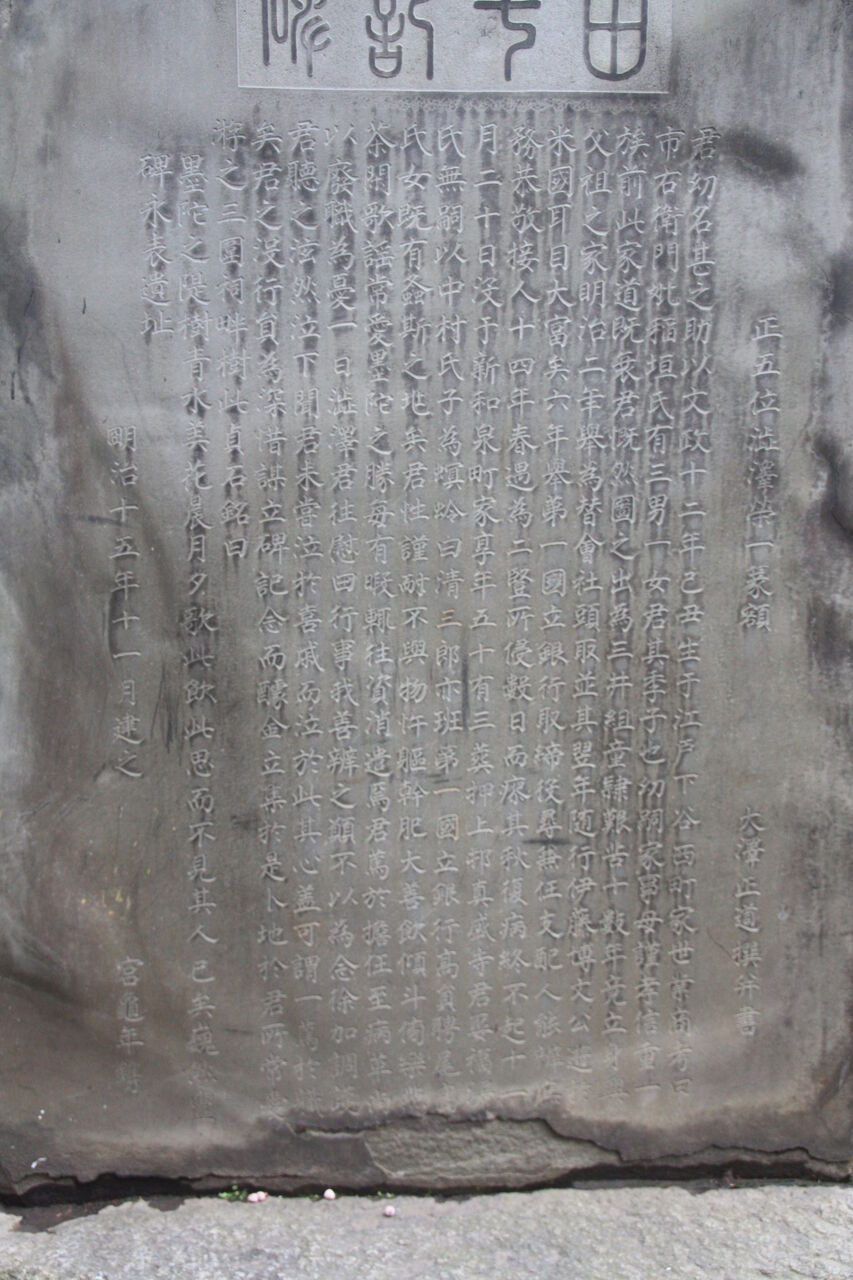 田
記碑
正五位澁澤榮一篆額 大澤正道撰并書
君幼名甚之助以文政十二年己丑生于江戸下谷西町家世常商考曰
市右衛門妣稲垣氏有三男一女君其季子也幼 家 母謹孝信重一
族前此家道既衰君慨然圖之出為三井組童隷艱苦十数年竟立身
父祖之家明治二年舉為替會社頭取並其翌年随行伊藤博文公遊
米國耳目大富矣六年舉第一國立銀行取締役尋兼任支配人
務恭敬接人十四年春遇為二豎所侵數日而瘳其秋復病終不起十一
月二十日没于新和泉町家享年五十有三葬押上邨真盛寺君娶福
氏無嗣以中村氏子為螟蛉曰清三郎亦班第一國立銀行高員
氏女既有螽斯之兆矣君性謹耐不與物忤軀幹肥大善飲傾斗
茶間歌謡常愛墨陀之勝毎有暇輒往資消遣焉君篤於擔任至病革
以廢職為憂一日澁澤君往慰曰行事我善辨之願不以為念徐加調
君聴之泫然泣下聞君未嘗泣於喜戚而泣於此其心盖可謂一篤於
矣君之没行員為深惜謀立碑記念而醵金立集於是卜地於君所常
将之三圍祠畔樹此貞石銘曰
墨陀之隄樹青水美花晨月夕歌此飲此思而不見其人已矣巍
碑永表遺址
明治十五年十一月建之 宮龜年鐫